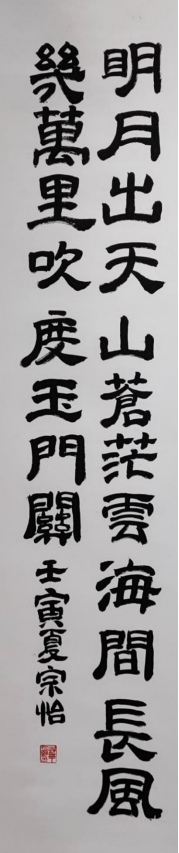 明月出天山蒼茫雲海間長風
幾萬里吹度玉門關
壬寅夏宗怡